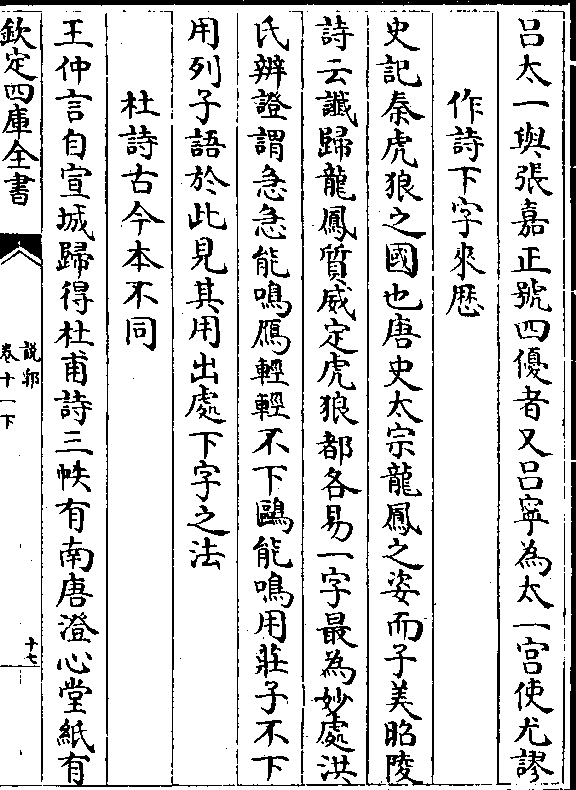 吕太一與張嘉正號四優者又吕寧為太一宫使尤謬
作詩下字來歴
史記秦虎狼之國也唐史太宗龍鳳之姿而子美昭陵
詩云讖歸龍鳳質威定虎狼都各易一字最為妙處洪
氏辨證謂急急能鳴鴈輕輕不下鷗能鳴用莊子不下
用列子語於此見其用出處下字之法
杜詩古今本不同
王仲言自宣城歸得杜甫詩三帙有南唐澄心堂紙有
欽定四庫全書
說郛
卷十一下
十七